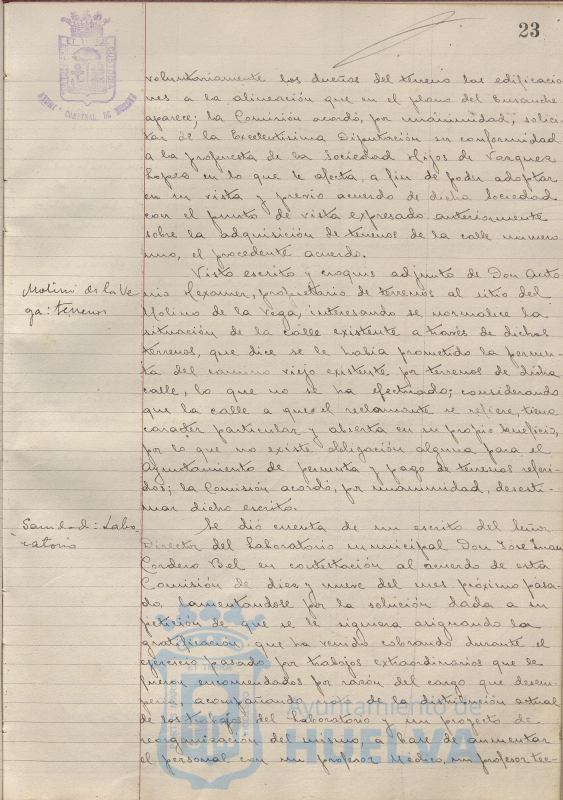 23
voluntariamente los dueños del terreno las edificacio
nes a la alineación que en el plano del Ensanche
aparece; la Comisión acordó, por unanimidad, solici-
tar de la Excelentísima Diputación su conformidad
a la propuesta de la Sociedad Hijos de Vazquez
Lopez en lo que le afecta, a fin de poder adoptar
en su vista y previo acuerdo de dicha Sociedad
con el punto de vista expresado anteriormente
sobre la adquisición de terrenos de la calle numero
uno, el procedente acuerdo.
Molino de la Ve
ga: terrenos
Visto escrito y croquis adjunto de Don Anto
nio Hexamer, propietario de terrenos al sitio del
Molino de la Vega, interesando se normalice la
situación de la calle existente a través de dichos
terrenos, que dice se le había prometido la permu-
ta del camino viejo existente por terrenos de dicha
calle, lo que no se ha efectuado; considerando
que la calle a que el reclamante se refiere, tiene
caracter particular y abierta en su propio beneficio,
por lo que no existe obligación alguna para el
Ayuntamiento de permuta y pago de terrenos referi-
dos; la Comisión acordó, por unanimidad, desesti-
mar dicho escrito.
Sanidad: Labo-
ratorio
Se dió cuenta de un escrito del Señor
Director del Laboratorio municipal Don José
Cordero Bel en contestación al acuerdo de esta
Comisión de diez y nueve del mes próximo pasa-
do, lamentandose por la solución dada a su
petición de que se le siguiera asignando la
gratificación que ha venido cobrando durante el
ejercicio pasado por trabajos extraordinarios que le
fueron encomendados por razón del cargo que desem-
peña, acompañando de la distribución actual
de los trabajos del Laboratorio y un proyecto de
reorganización del mismo, a base de aumentar
el personal con un profesor Medico, un profesor tec-
Ayuntamiento de
HUELVA